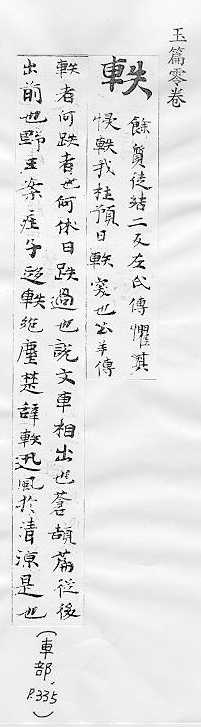 玉篇零卷
軼
餘質徒結二反左氏傳懼其
侵軼我杜預曰軼突也公羊傳
軼者何跌者也何休曰跌過也說文車相出也蒼頡篇從後
出前也野王案庄子超軼絶塵楚辝軼迅風於清源是也
(車部, P.335)